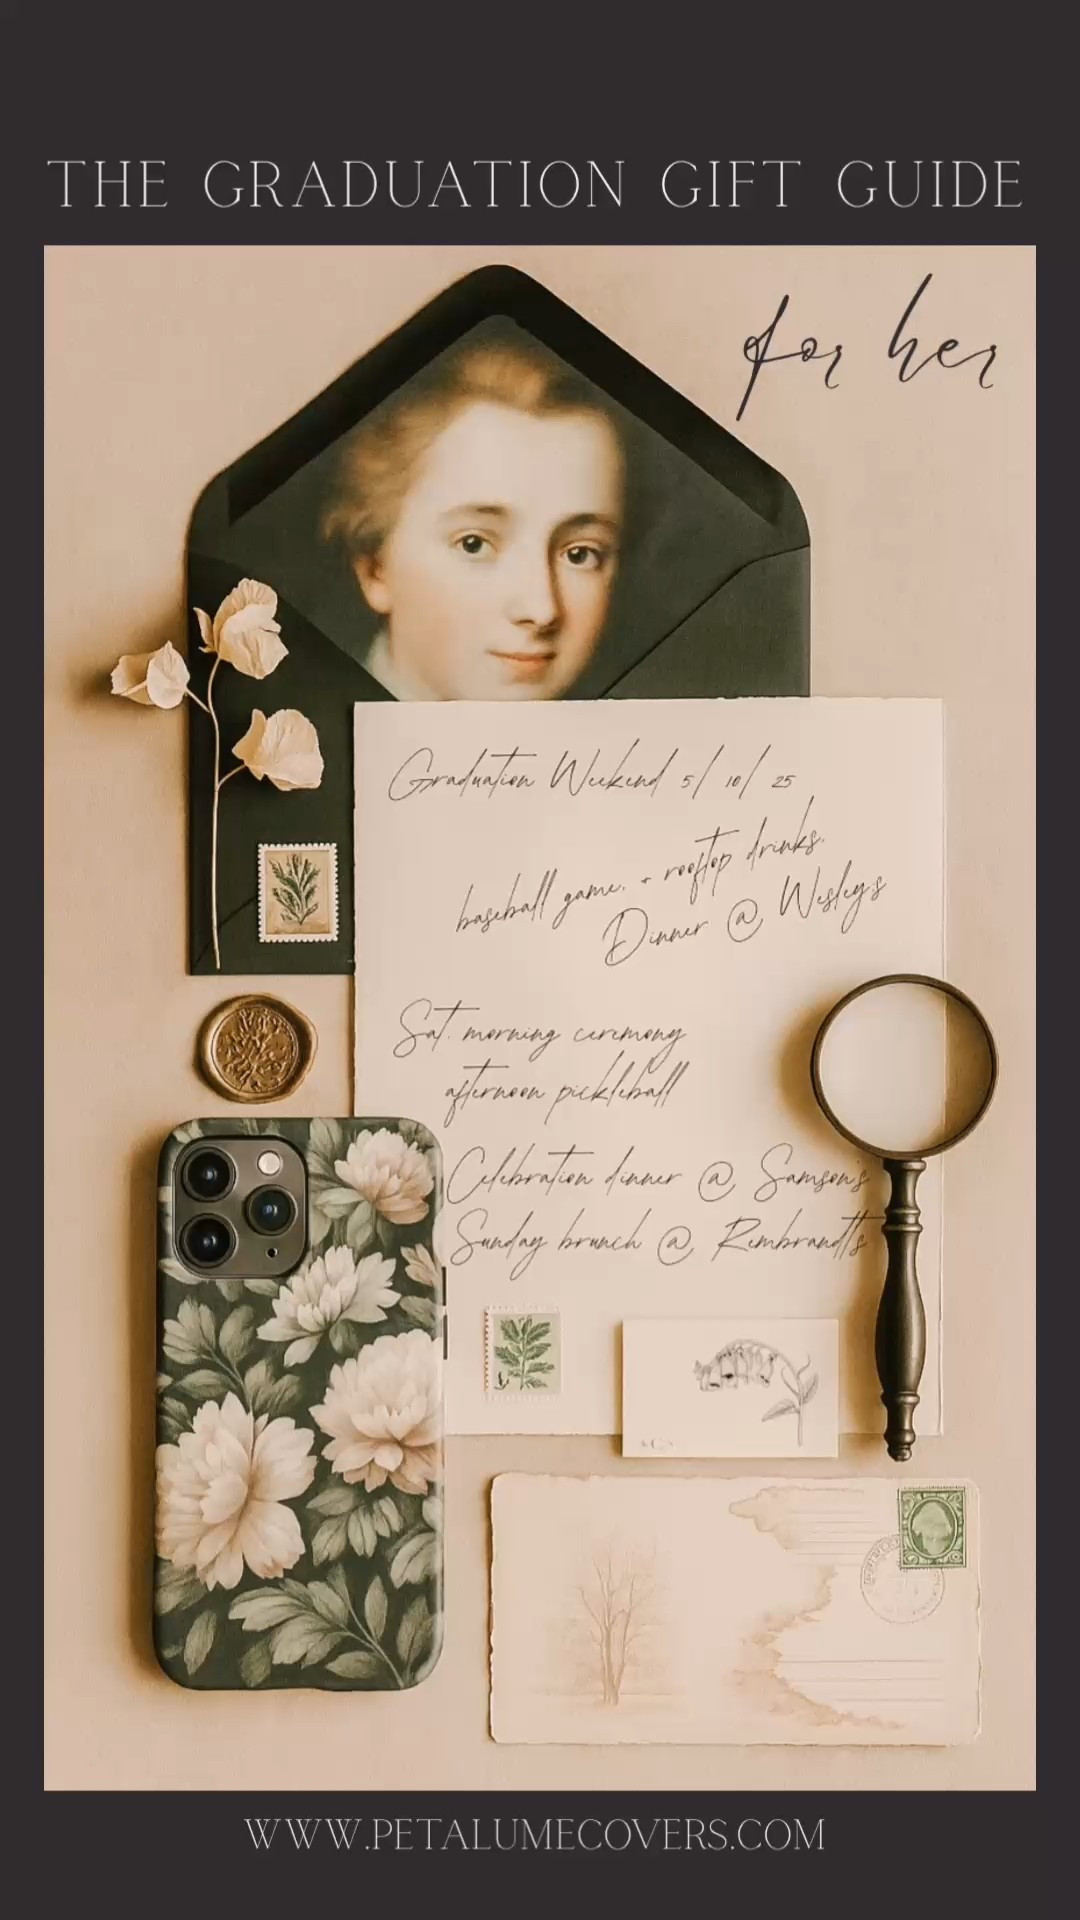 THE GRADUATION GIFT GUIDE
for her
Graduation Weekend 5/ 10/ 25
baseball game. + rooftop drinks.
Dinner @ Wesley's
Sat. morning ceremony
afternoon pickleball
Celebration dinner @ Samson's
Sunday brunch @ Rembrandt's
WWW.PETALUMECOVERS.COM